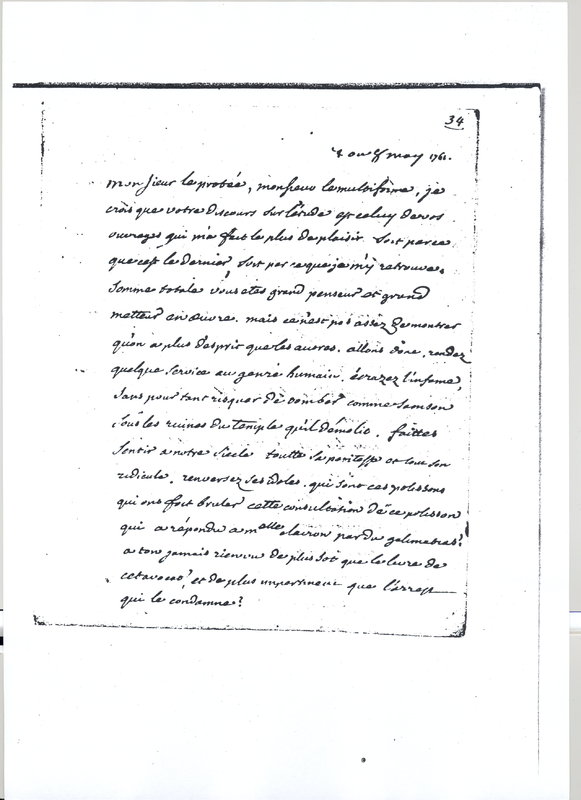 34
7 ou 8 may 1761.
monsieur le protée, monsieur le multiforme, je
crois que votre discours sur l'étude est celuy de vos
ouvrages qui m'a fait le plus de plaisir. Soit parce
que c'est le dernier, soit parceque je m'y retrouve.
Somme totale vous etes grand penseur et grand
metteur en oeuvre. mais ce n'est pas assez de montrer
qu'on a plus d'esprit que les autres. allons donc, rendez
quelque service au genre humain. écrazez l'infame,
sans pour tant risquer de tomber comme Samson
sous les ruines du temple qu'il démolit. faittes
sentir a notre siecle toutte sa petitesse et tout son
ridicule. renversez ses idoles. qui sont ces polissons
qui ont fait bruler cette consultation de ce polisson
qui a répondu a mlle clairon par du galimatias?
a t'on jamais rien vu de plus sot que le livre de
cet avocat, et de plus impertinent que l'arrest
qui le condamne?